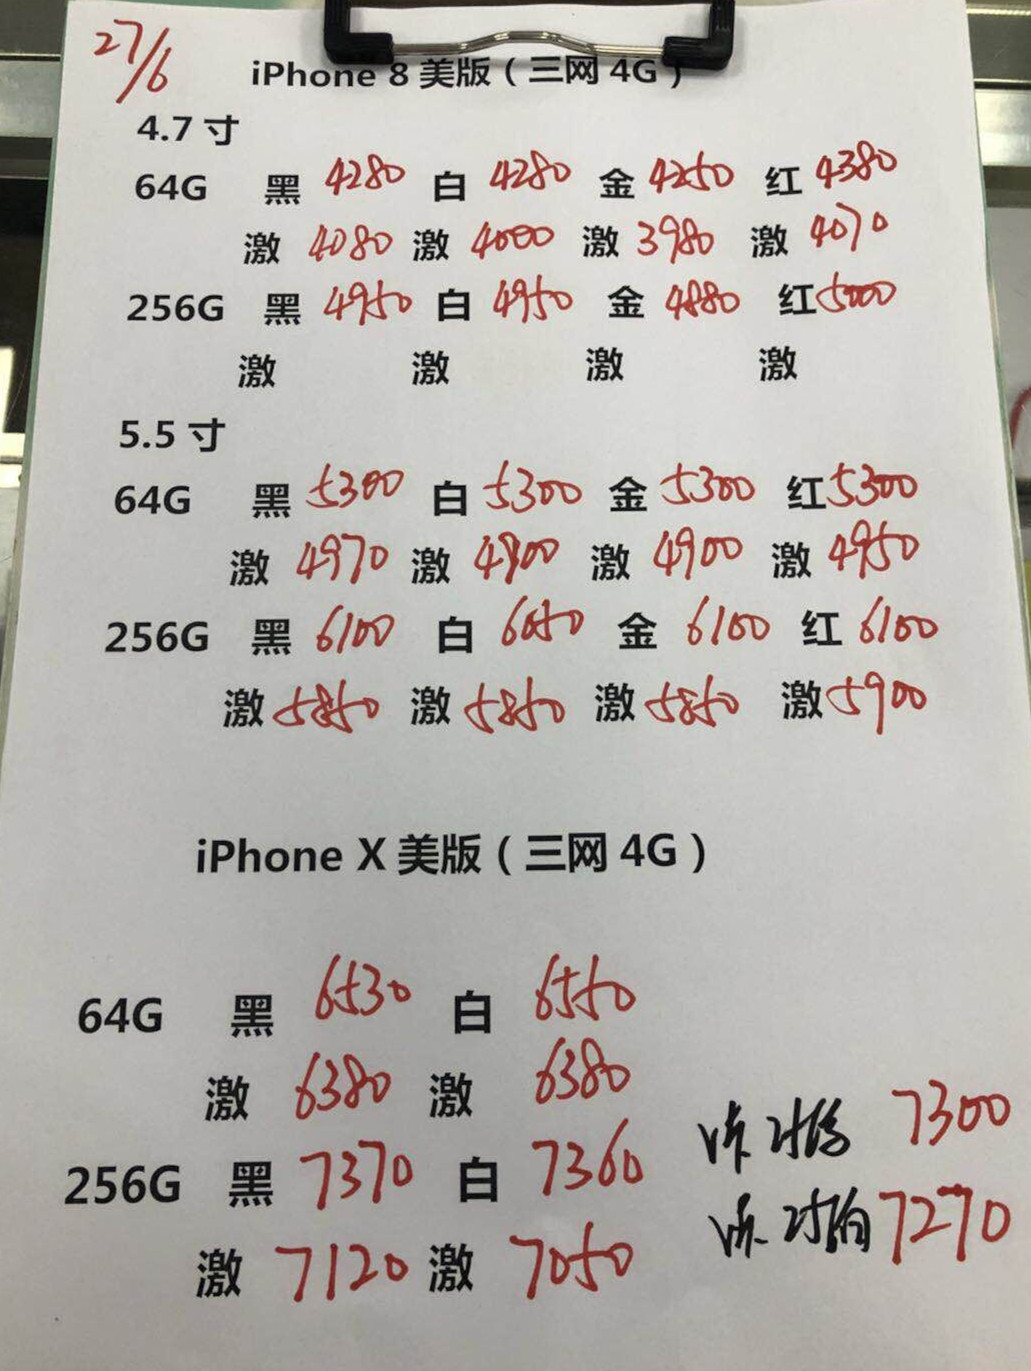 27/6
iPhone 8 美版（三网 4G）
4.7 寸
64G 黑 4280 白 4280 金 4250 红 4380
激 4080 激 4000 激 3980 激 4070
256G 黑 4950 白 4950 金 4880 红 5000
激 激 激 激
5.5 寸
64G 黑 5300 白 5300 金 5300 红 5300
激 4970 激 4900 激 4900 激 4950
256G 黑 6100 白 6050 金 6100 红 6100
激 5850 激 5850 激 5850 激 5900
iPhone X 美版（三网 4G）
64G 黑 6530 白 6550
激 6380 激 6380
7300
256G 黑 7370 白 7360
7270
激 7120 激 7050